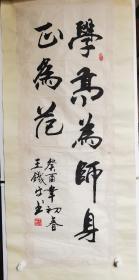 學高為師身
正為范
癸酉年初春
王鐵牛书